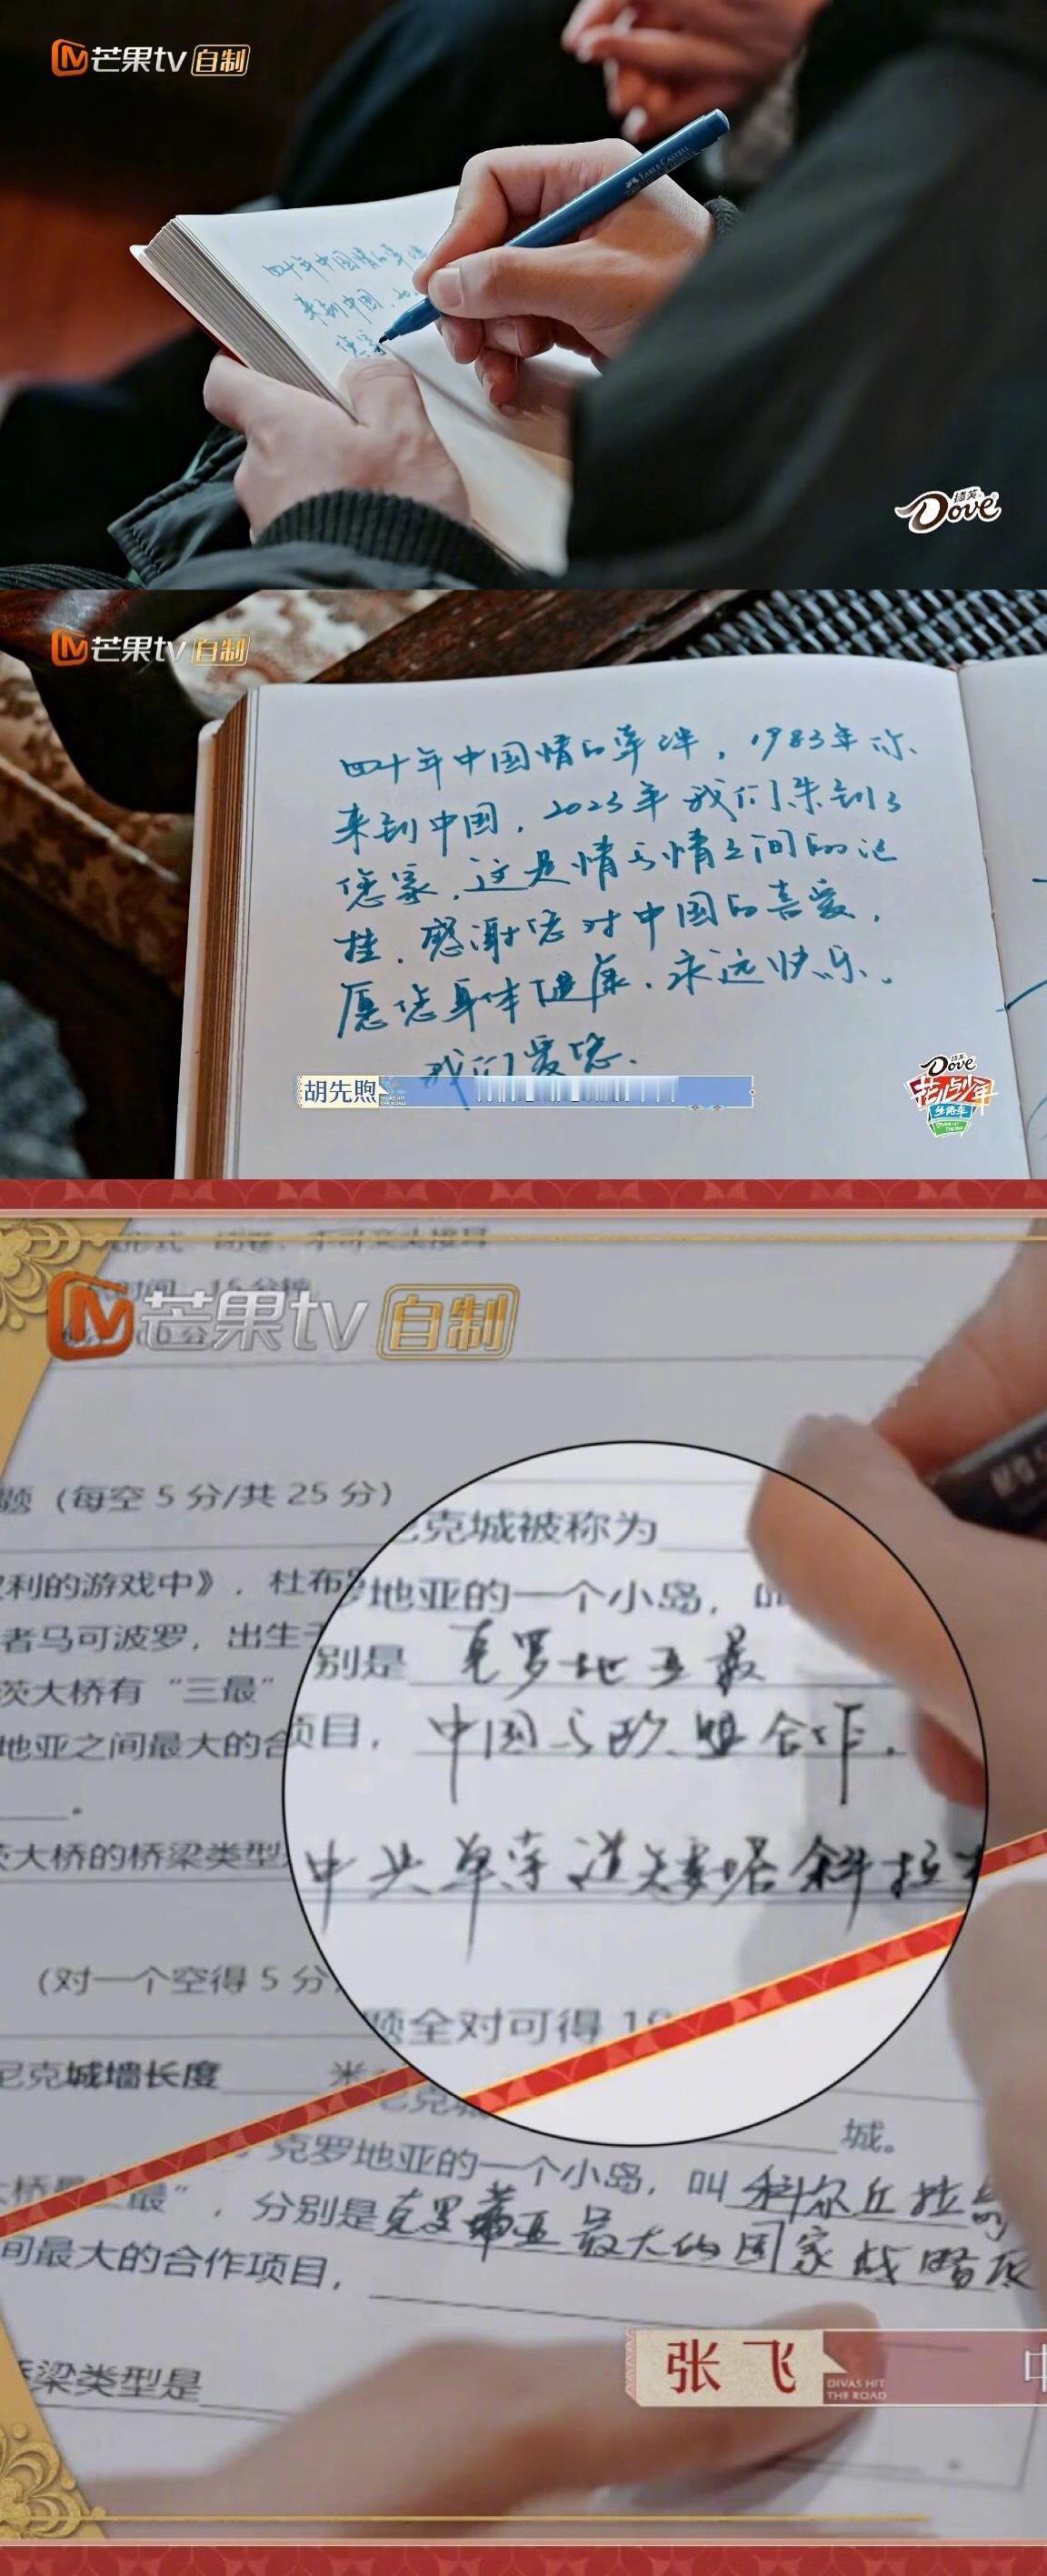 芒果tv 自制
FABER-CASTELL
四十年中国情的牵绊
来到中国，
您家
德芙
Dove
芒果tv 自制
四十年中国情的牵绊，1983年你
来到中国，2023年我们来到了
您家，这是情与情之间的记
挂，感谢您对中国的喜爱，
愿您身体健康，永远快乐。
我们爱您.
胡先煦
DIVAS HIT
THE ROAD
Dove
花儿与少年
丝路季
时间 15分钟
芒果tv 自制
题（每空 5 分/共 25 分）
克城被称为
利的游戏中》，杜布
罗地亚的一个小岛，叫
者马可波罗，出生于
别是 克罗地亚最
茨大桥有“三最”
地亚之间最大的合
项目，中国与欧盟合作.
茨大桥的桥梁类型
中央单索道矮塔斜拉
（对一个空得 5 分
题全对可得 10
尼克城墙长度 米
尼克城
城。
克罗地亚的一个小岛，叫 科尔丘拉岛
大桥 最”，分别是克罗蒂亚最大的国家战略
间最大的合作项目，
梁类型是
张飞
DIVAS HIT
THE ROAD
中